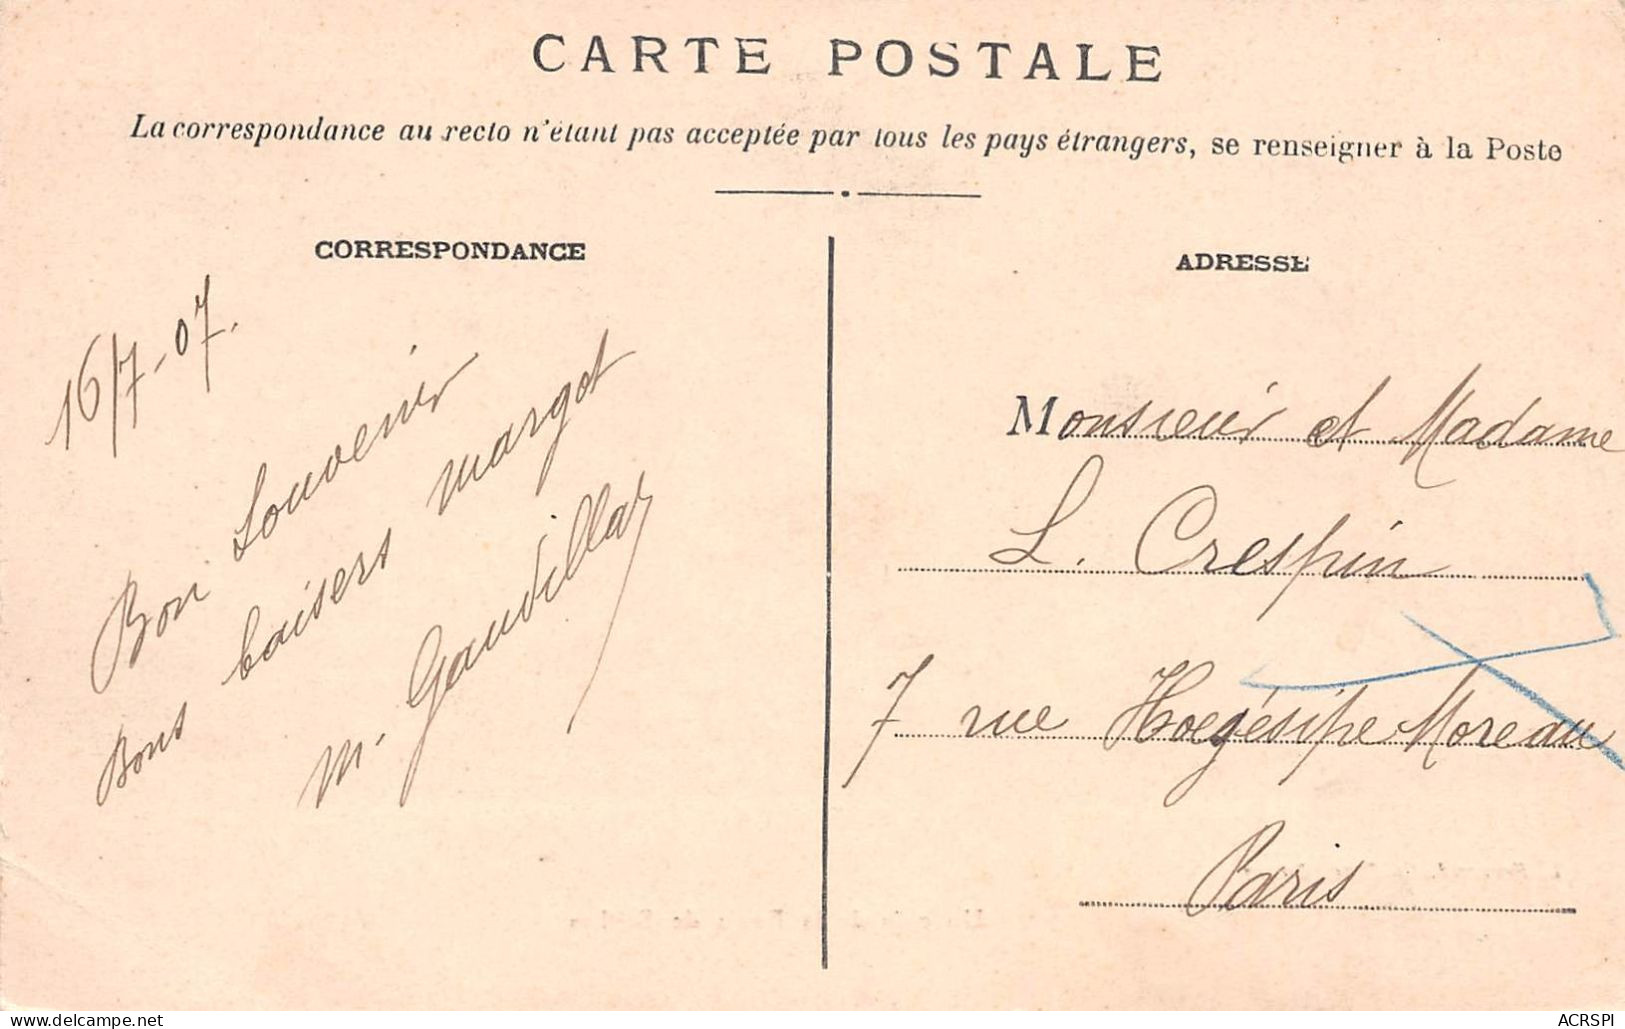 CARTE POSTALE
La correspondance au recto n'étant pas acceptée par tous les pays étrangers, se renseigner à la Poste
CORRESPONDANCE
16/7-07.
Bon Souvenir
Bons baisers Margot
M. Gaudillat
ADRESSE
Monsieur et Madame
L. Crespin
7 rue Hoegésipe Moreau
Paris
delcampe.net
ACRSPI